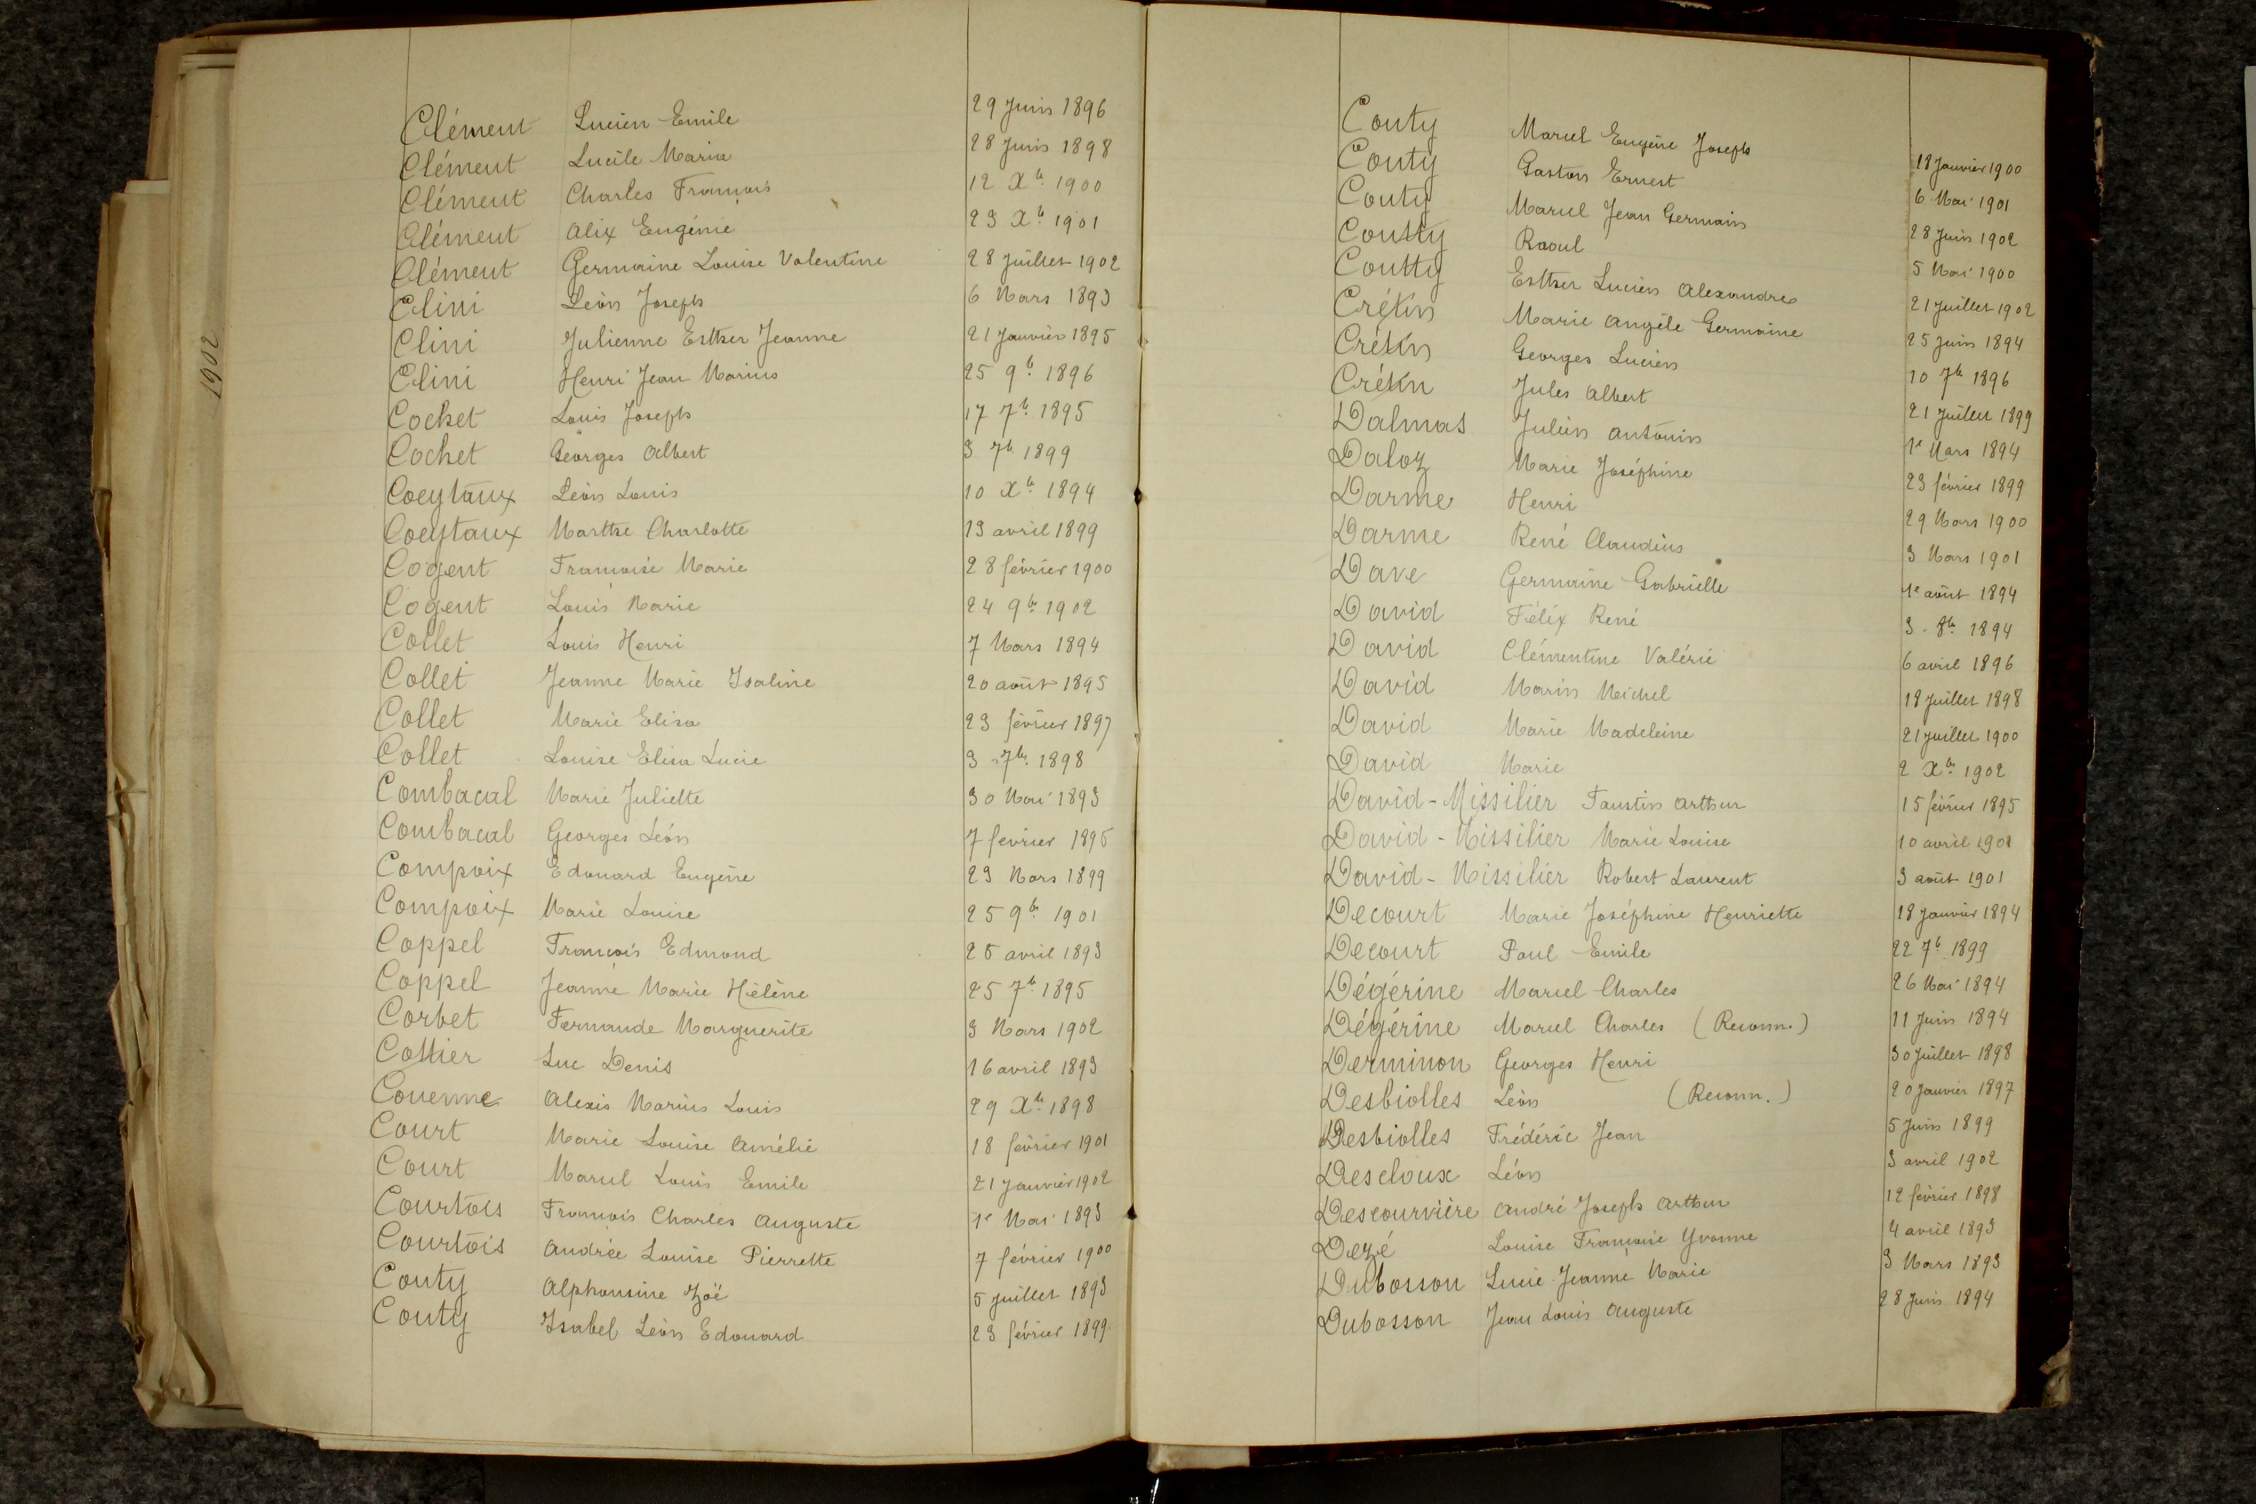 1902
Clément Lucien Emile 29 Juin 1896
Clément Lucile Maria 28 Juin 1898
Clément Charles François 12 Xb. 1900
Clément Alix Eugénie 23 Xb. 1901
Clément Germaine Louise Valentine 28 Juillet 1902
Clini Léon Joseph 6 Mars 1893
Clini Julienne Esther Jeanne 21 Janvier 1895
Clini Henri Jean Marius 25 9b. 1896
Cochet Louis Joseph 17 7b. 1895
Cochet Georges Albert 3 7b. 1899
Coeytaux Léon Louis 10 Xb. 1894
Coeytaux Marthe Charlotte 13 avril 1899
Cogent Françoise Marie 28 février 1900
Cogent Louis Marie 24 9b. 1902
Collet Louis Henri 7 Mars 1894
Collet Jeanne Marie Isaline 20 août 1895
Collet Marie Elisa 23 février 1897
Collet Louise Elisa Lucie 3 7b. 1898
Combacal Marie Juliette 30 Mai 1893
Combacal Georges Léon 7 février 1895
Compoix Edouard Eugène 23 Mars 1899
Compoix Marie Louise 25 9b. 1901
Coppel François Edmond 25 avril 1893
Coppel Jeanne Marie Hélène 25 7b. 1895
Corbet Fernande Marguerite 3 Mars 1902
Cottier Luc Denis 16 avril 1893
Couenne Alexis Marius Louis 29 Xb. 1898
Court Marie Louise Amélie 18 février 1901
Court Marcel Louis Emile 21 Janvier 1902
Courtois François Charles Auguste 1e Mai 1893
Courtois Andrée Louise Pierrette 7 février 1900
Couty Alphonsine Zoë 5 juillet 1893
Couty Isabel Léon Edouard 23 février 1899
Couty Marcel Eugène Joseph 18 Janvier 1900
Couty Gaston Ernest 6 Mai 1901
Couty Marcel Jean Germain 28 Juin 1902
Coutty Raoul 5 Mai 1900
Coutty Esther Lucien Alexandre 21 Juillet 1902
Crétin Marie Angèle Germaine 25 Juin 1894
Crétin Georges Lucien 10 7b 1896
Crétin Jules Albert 21 Juillet 1899
Dalmas Julien Antonin 1e Mars 1894
Daloz Marie Joséphine 23 février 1899
Darme Henri 29 Mars 1900
Darme René Claudius 3 Mars 1901
Dave Germaine Gabrielle 1e août 1894
David Félix René 3 8b. 1894
David Clémentine Valérie 6 avril 1896
David Marin Michel 18 Juillet 1898
David Marie Madeleine 21 juillet 1900
David Marie 2 Xb. 1902
David-Missilier Faustin Arthur 15 février 1895
David-Missilier Marie Louise 10 avril 1901
David-Missilier Robert Laurent 3 août 1901
Decourt Marie Joséphine Henriette 18 Janvier 1894
Decourt Paul Emile 22 7b. 1899
Dégérine Marcel Charles 26 Mai 1894
Dégérine Marcel Charles (Reconn.) 11 Juin 1894
Derminon Georges Henri 30 Juillet 1898
Desbiolles Léon (Reconn.) 20 Janvier 1897
Desbiolles Frédéric Jean 5 Juin 1899
Descloux Léon 3 avril 1902
Descourvière André Joseph Arthur 12 février 1898
Dezé Louise Françoise Yvonne 4 avril 1893
Dubosson Lucie Jeanne Marie 3 Mars 1893
Dubosson Jean Louis Auguste 28 Juin 1894